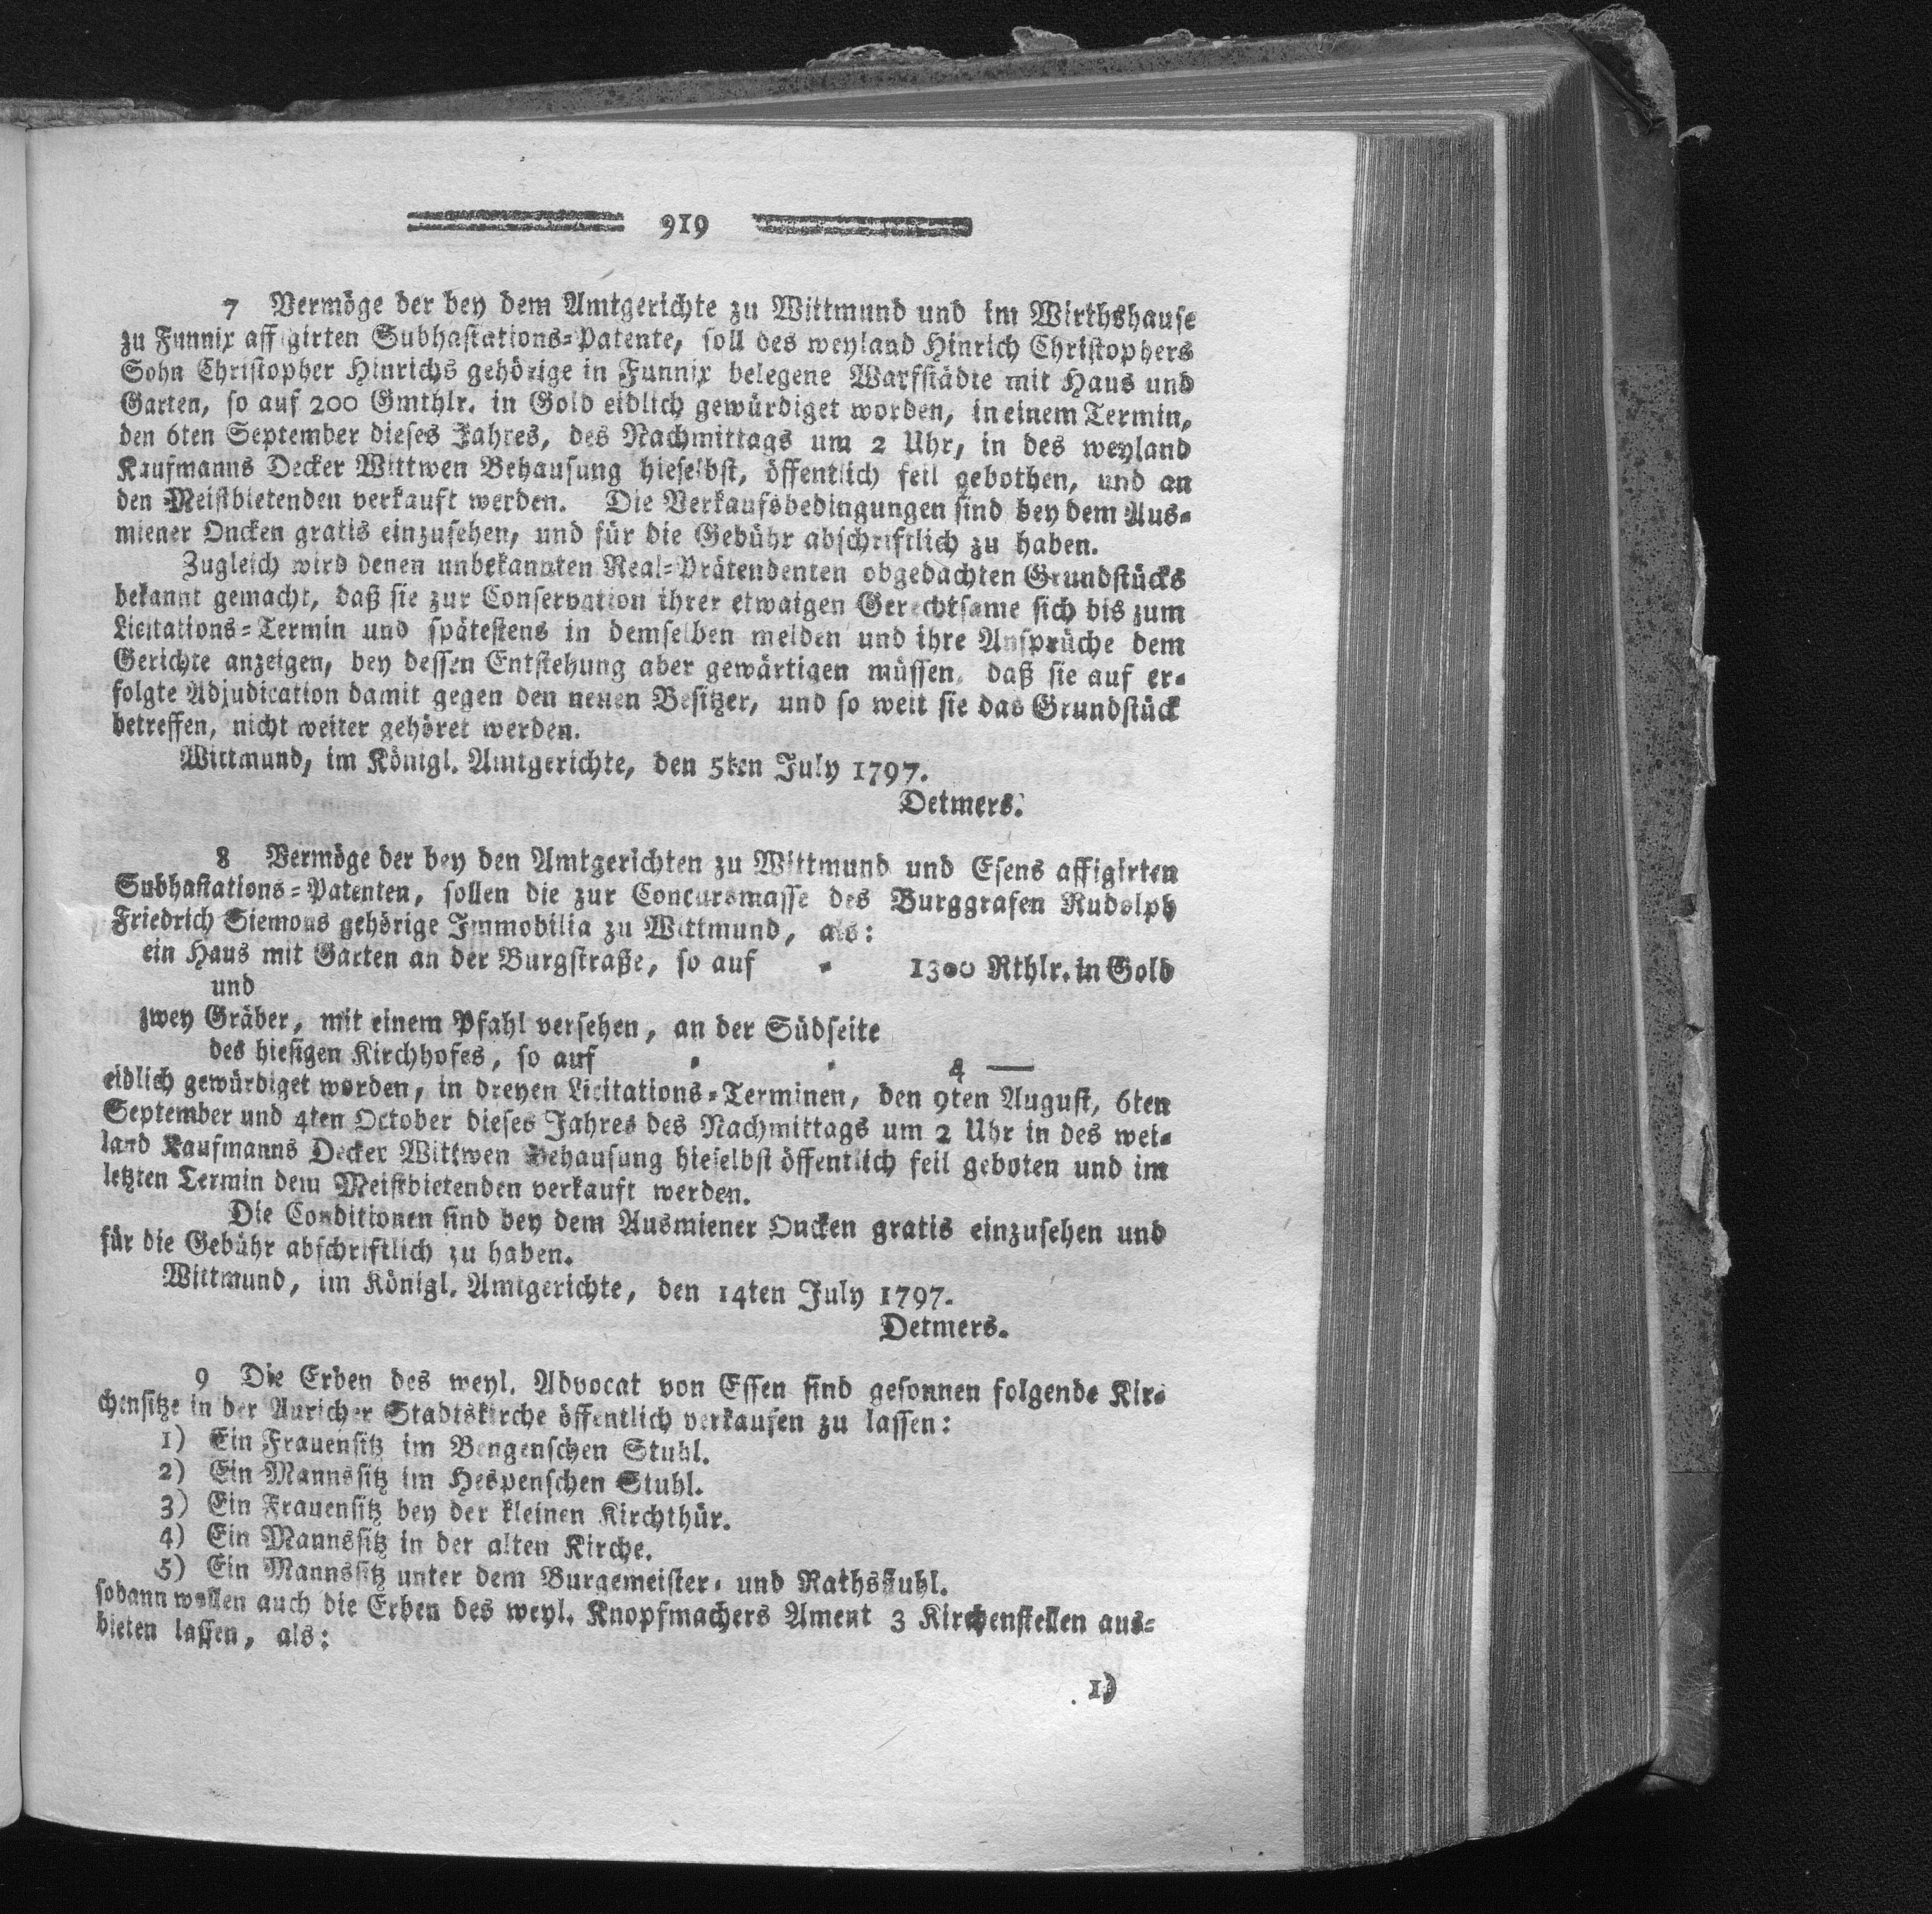 919
7 Vermöge der bey dem Amtgerichte zu Wittmund und im Wirthshause
zu Funnix affigirten Subhastations-Patente, soll des weyland Hinrich Christophers
Sohn Christopher Hinrichs gehörige in Funnix belegene Warfstädte mit Haus und
Garten, so auf 200 Gmthlr. in Gold eidlich gewürdiget worden, in einem Termin,
den 6ten September dieses Jahres, des Nachmittags um 2 Uhr, in des weyland
Kaufmanns Decker Wittwen Behausung hieselbst, öffentlich feil gebothen, und an
den Meistbietenden verkauft werden. Die Verkaufsbedingungen sind bey dem Aus-
miener Oncken gratis einzusehen, und für die Gebühr abschriftlich zu haben.
Zugleich wird denen unbekannten Real-Prätendenten obgedachten Grundstücks
bekannt gemacht, daß sie zur Conservation ihrer etwaigen Gerechtsame sich bis zum
Licitations-Termin und spätestens in demselben melden und ihre Ansprüche dem
Gerichte anzeigen, bey dessen Entstehung aber gewärtigen müssen, daß sie auf er-
folgte Adjudication damit gegen den neuen Besitzer, und so weit sie das Grundstück
betreffen, nicht weiter gehöret werden.
Wittmund, im Königl. Amtgerichte, den 5ten July 1797.
Detmers.
8 Vermöge der bey den Amtgerichten zu Wittmund und Esens affigirten
Subhastations-Patenten, sollen die zur Concursmasse des Burggrafen Rudolph
Friedrich Siemons gehörige Immobilia zu Wittmund, als:
ein Haus mit Garten an der Burgstraße, so auf - 1300 Rthlr. in Gold
und
zwey Gräber, mit einem Pfahl versehen, an der Südseite
des hiesigen Kirchhofes, so auf - - 4 —
eidlich gewürdiget worden, in dreyen Licitations-Terminen, den 9ten August, 6ten
September und 4ten October dieses Jahres des Nachmittags um 2 Uhr in des wei-
land Kaufmanns Decker Wittwen Behausung hieselbst öffentlich feil geboten und im
letzten Termin dem Meistbietenden verkauft werden.
Die Conditionen sind bey dem Ausmiener Oncken gratis einzusehen und
für die Gebühr abschriftlich zu haben.
Wittmund, im Königl. Amtgerichte, den 14ten July 1797.
Detmers.
9 Die Erben des weyl. Advocat von Essen sind gesonnen folgende Kir-
chensitze in der Auricher Stadtskirche öffentlich verkaufen zu lassen:
1) Ein Frauensitz im Bengenschen Stuhl.
2) Ein Mannssitz im Hespenschen Stuhl.
3) Ein Frauensitz bey der kleinen Kirchthür.
4) Ein Mannssitz in der alten Kirche.
5) Ein Mannssitz unter dem Burgemeister- und Rathsstuhl.
sodann wollen auch die Erben des weyl. Knopfmachers Ament 3 Kirchenstellen aus-
bieten lassen, als:
1)